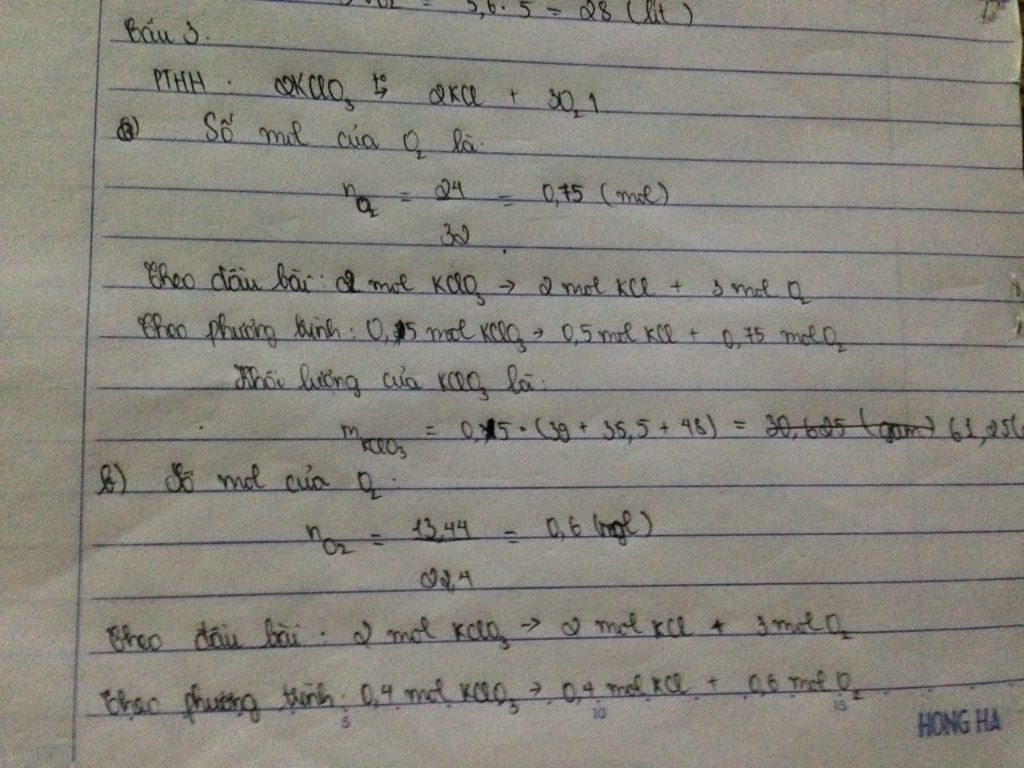 = 5,6 . 5 = 28 (lít)
Bài 3.
PTHH : 2KClO3 t° → 2KCl + 3O2↑
a) Số mol của O2 là:
nO2 = 24/32 = 0,75 (mol)
Theo đầu bài: 2 mol KClO3 → 2 mol KCl + 3 mol O2
Theo phương trình: 0,5 mol KClO3 → 0,5 mol KCl + 0,75 mol O2
Khối lượng của KClO3 là:
mKClO3 = 0,5 . (39 + 35,5 + 48) = 30,625 (gam) 61,25(
b) Số mol của O2 :
nO2 = 13,44/22,4 = 0,6 (mol)
Theo đầu bài : 2 mol KClO3 → 2 mol KCl + 3 mol O2
Theo phương trình : 0,4 mol KClO3 → 0,4 mol KCl + 0,6 mol O2
5 10 15
HONG HA